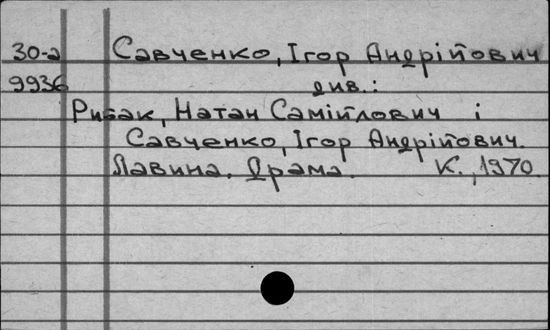 30-а Савченко, Ігор Андрійович
9936 див.:
Рибак, Натан Самійлович і
Савченко, Ігор Андрійович.
Лавина. Драма. К., 1970